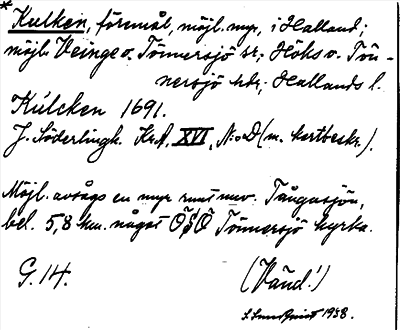 *Kulken, föremål, möjl. myr, i Halland;
möjl. Veinge o. Tönnersjö sr; Höks o. Tön-
nersjö hdr; Hallands l.
Kúlcken 1691.
J. Söderlingk. KrA, XVI, N:o D (m. kartbeskr.).
Möjl. avsågs en myr runt nuv. Tångasjön,
bel. 5,8 km. något ÖSÖ Tönnersjö kyrka.
G. 14.
(Vänd!)
1938.